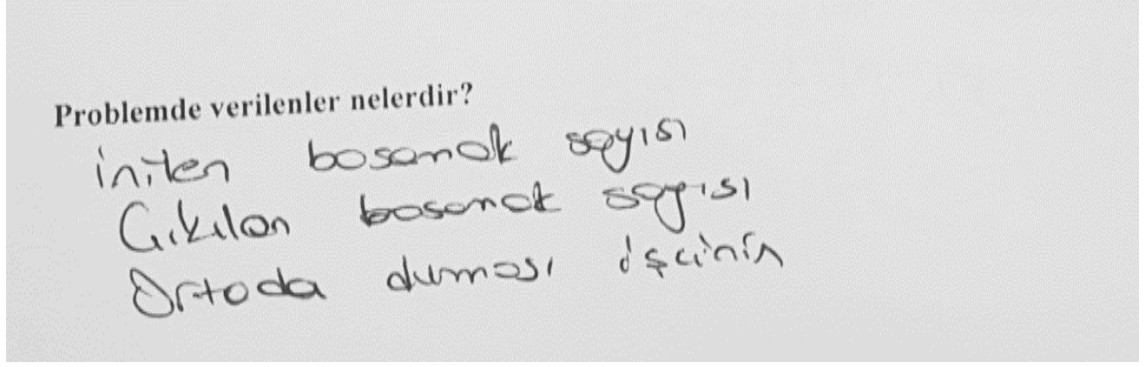 Problemde verilenler nelerdir?
inilen basamak sayısı
Çıkılan basamak sayısı
Ortada duması işçinin